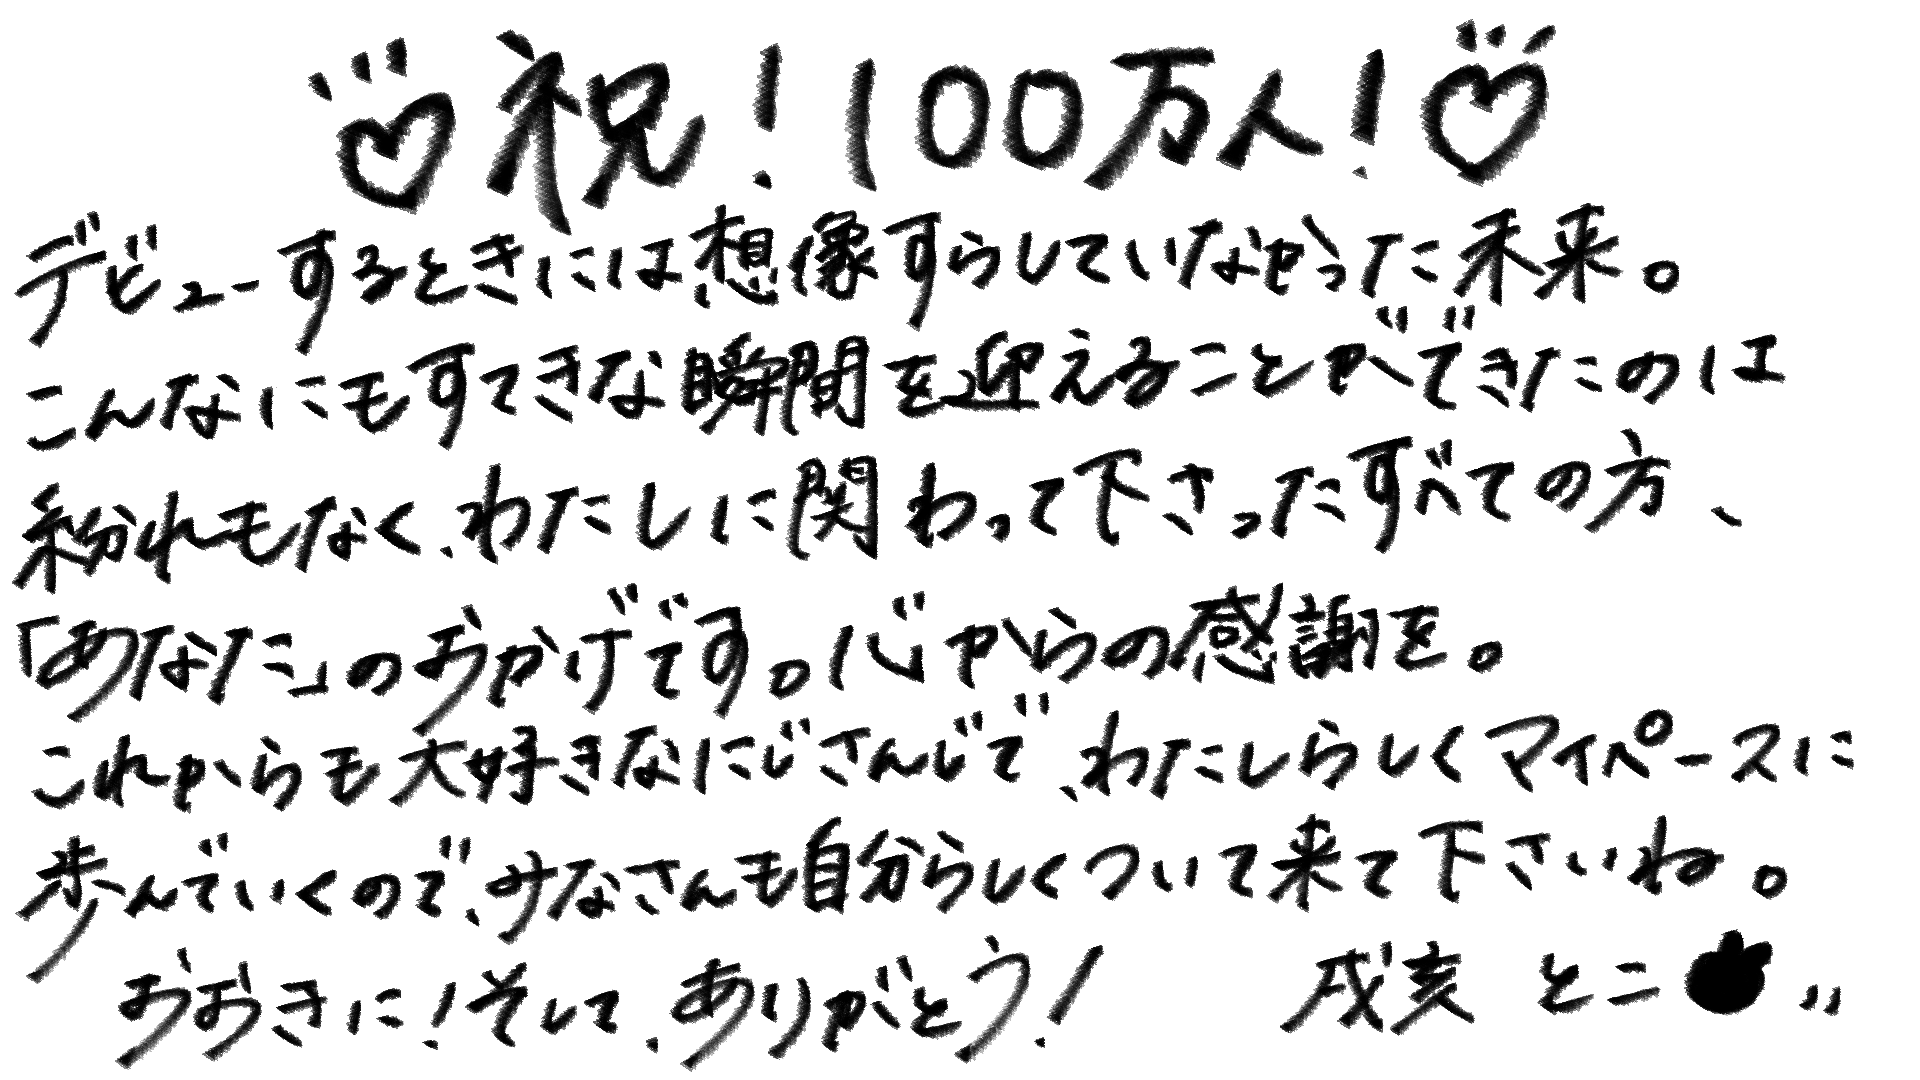 ♡祝!100万人!♡
デビューするときには想像すらしていなかった未来。
こんなにもすてきな瞬間を迎えることができたのは
紛れもなく、わたしに関わって下さったすべての方、
「あなた」のおかげです。心からの感謝を。
これからも大好きなにじさんじで、わたしらしくマイペースに
歩んでいくので、みなさんも自分らしくついて来て下さいね。
おおきに!そして、ありがとう!　戌亥 とこ